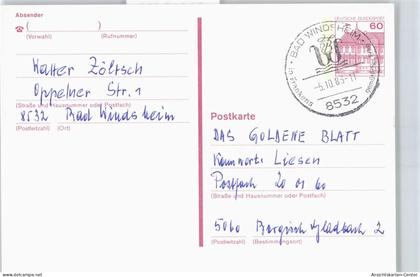 Absender
( )
(Vorwahl) (Rufnummer)
Walter Zöltsch
Oppelner Str. 1
(Straße und Hausnummer oder Postfach)
8532 Bad Windsheim
(Postleitzahl) (Ort)
DEUTSCHE BUNDESPOST
60
BAD WINDSHEIM
-5.10.83-17
8532
Postkarte
DAS GOLDENE BLATT
Kennwort: Liesen
Postfach 20 01 60
(Straße und Hausnummer oder Postfach)
5060 Bergisch Gladbach 2
(Postleitzahl) (Bestimmungsort)
delcampe.net
Ansichtskarten-Center